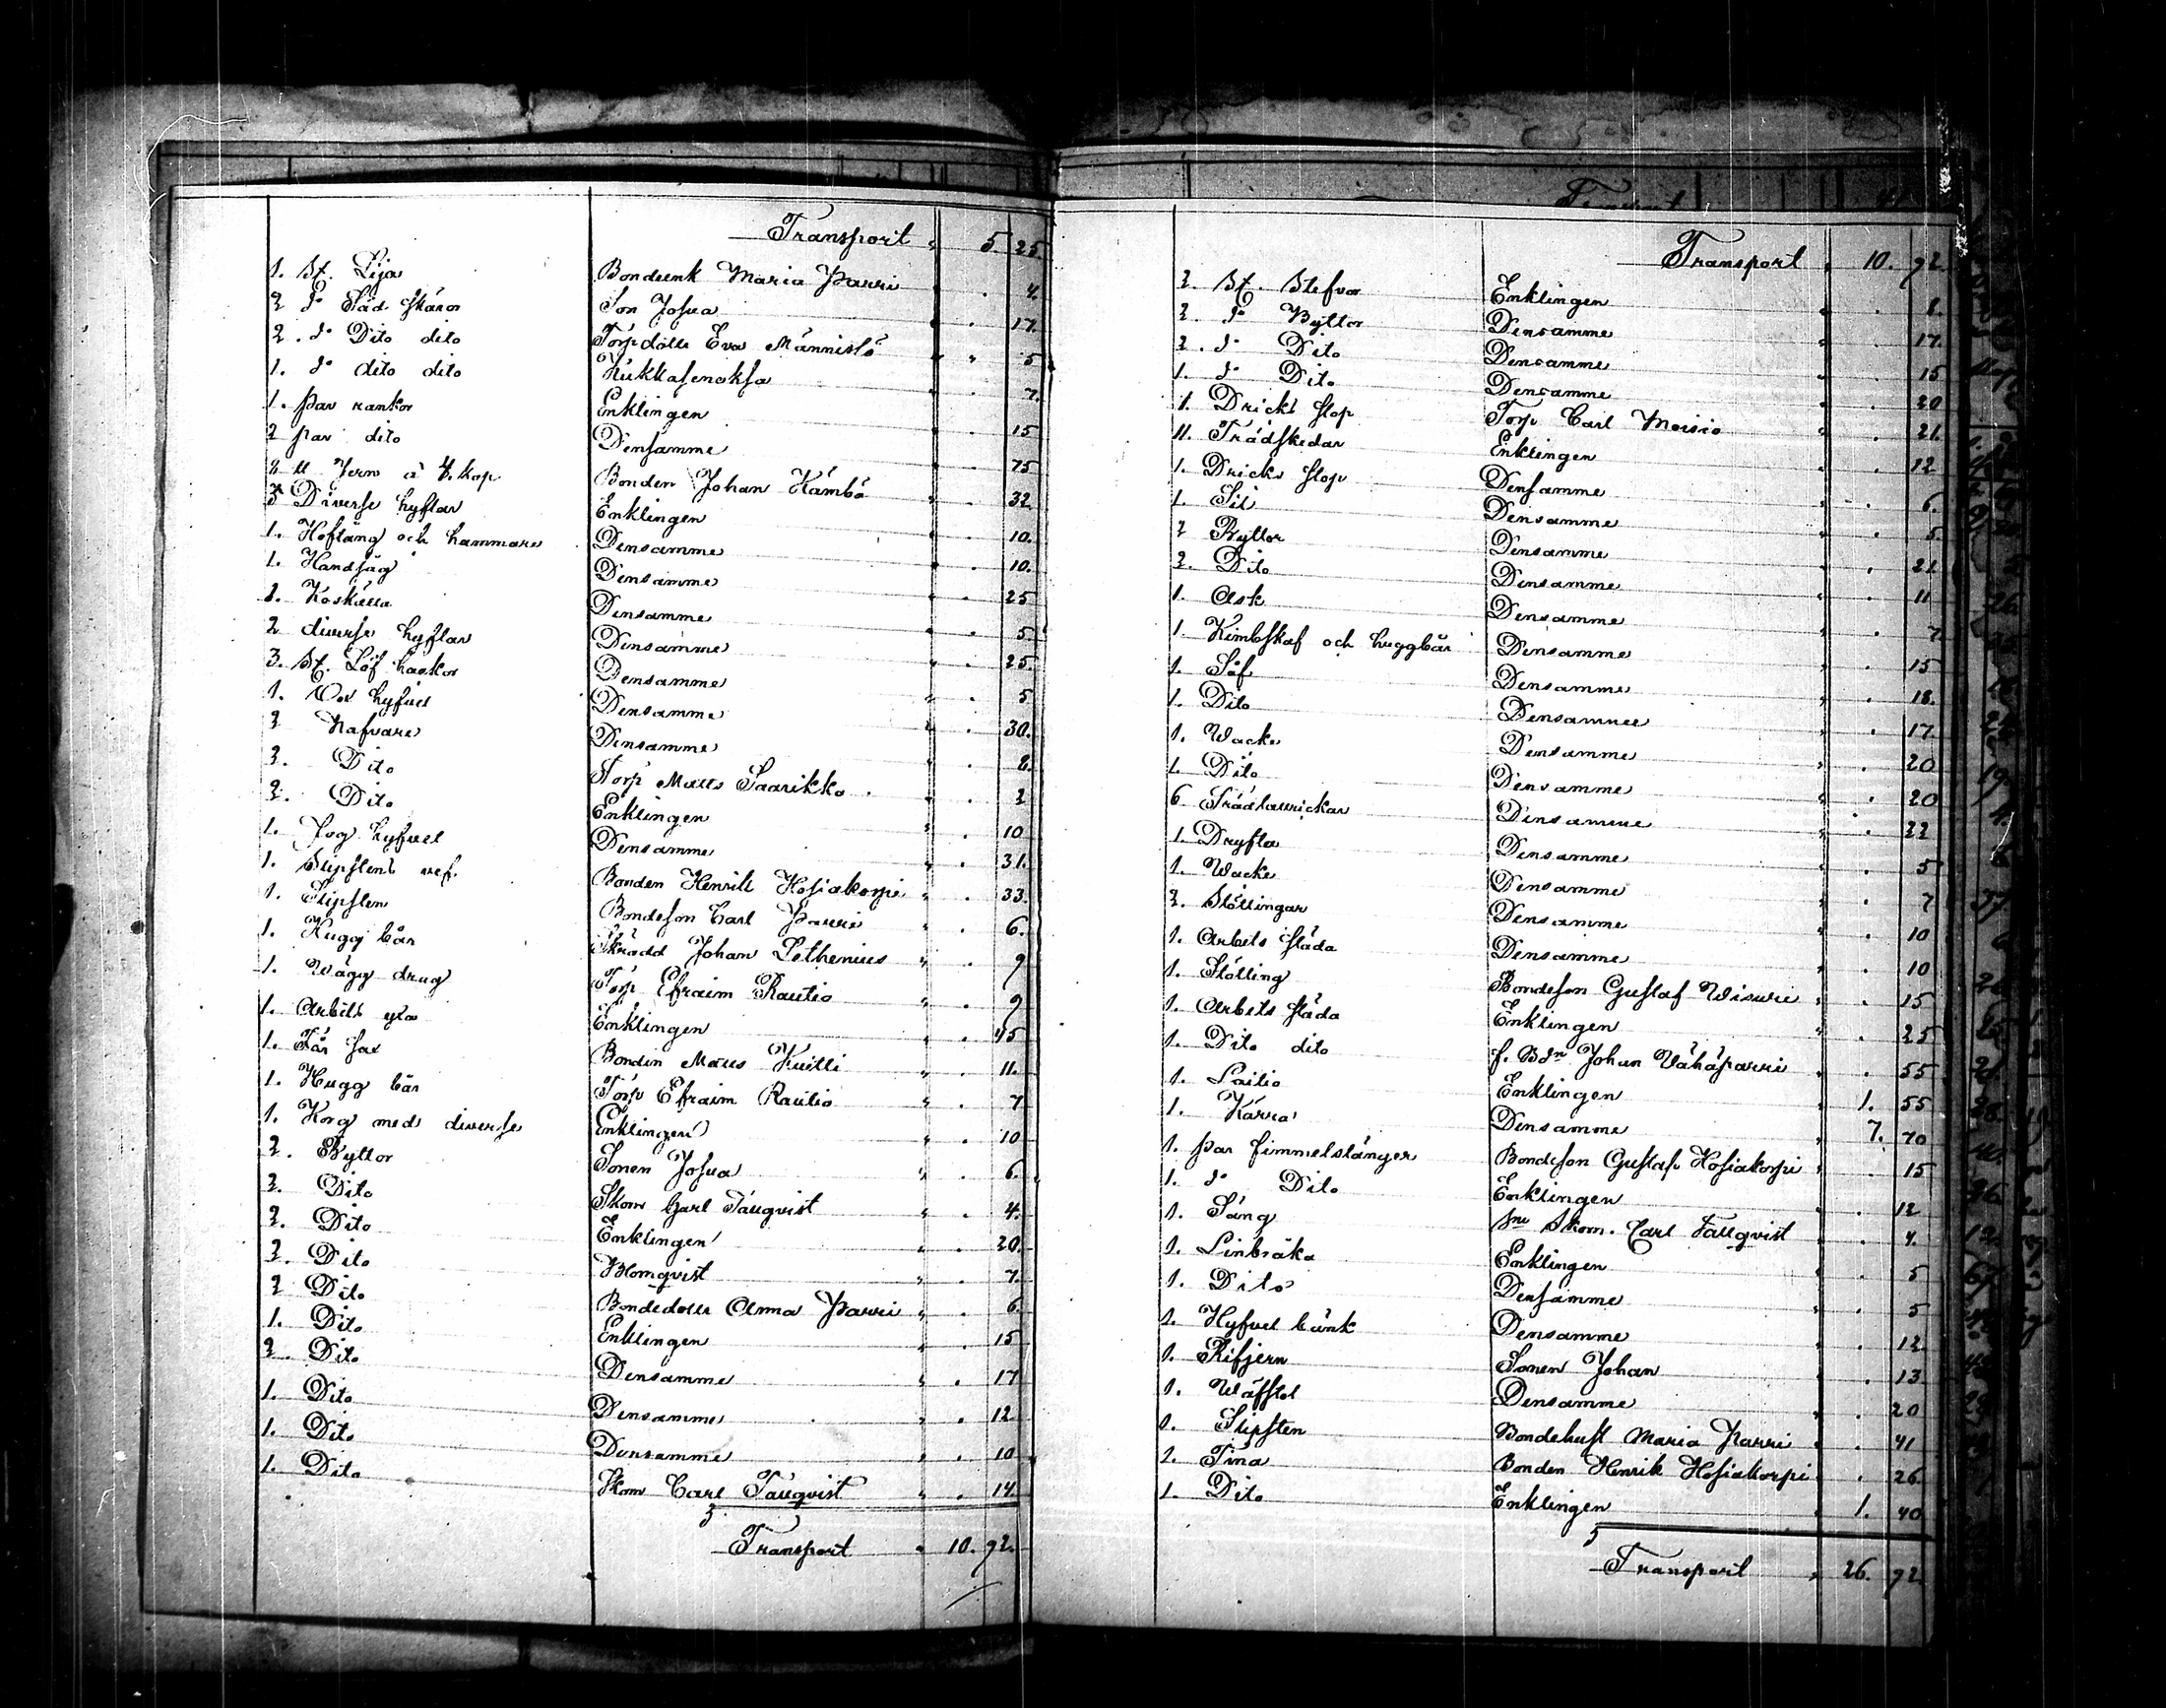 Transport 5 25
1. St. Lija Bondeenk Maria Parri 4.
2 d:o Säd skäror Son Josua 17.
2. d:o Dito dito Torpdottr Eva Männistö 5
1. d:o dito dito Kukkasenoksa 7.
1. par rankor Enklingen 15
2 par dito Densamme 75
8 ℔ Jern à 4. kop Bonden Johan Kämbö 32
3 Diverse hyflar Enklingen 10.
1. Hoftång och hammare Densamme 10.
1. Handsåg Densamme 25
1. Koskälla Densamme 5.
2 diverse hyflar Densamme 25.
3. St. Löf haskor Densamme 5
1. hyfvel Densamme 30.
2 Nafvare Densamme 8.
3. Dito Torp Matts Saarikko 2
2. Dito Enklingen 10
1. Fog hyfvel Densamme 31.
1. Slipstens vef. Bonden Henrik Hosiakorpi 33.
1. Slipsten Bondeson Carl Parri 6.
1. Hugg bår Skrädd Johan Lethenius 9
1. Wägg drug Torp Efraim Rautio 9
1. Arbets yxa Enklingen 45
1. Får sax Bonden Matts Knitti 11.
1. Hugg bår Torp Efraim Rautio 7
1. Korg med diverse Enklingen 10
2. Byttor Sonen Josua 6.
2. Dito Skom Carl Tallqvist 4.
2. Dito Enklingen 20.
2. Dito Blomqvist 7.
2 Dito Bondedottr Anna Parri 6
1. Dito Enklingen 15
2. Dito Densamme 17
1. Dito Densamme 12
1. Dito Densamme 10
1. Dito Skom Carl Tallqvist 14.
Transport 10. 92.
Transport 10. 92.
2. St. Stefvor Enklingen 8.
2. d:o Byttor Densamme 17.
2. d:o Dito Densamme 15
1. d:o Dito Densamme 20
1. Dricks stop Torp Carl Moisio 21.
11. Trädskedar Enklingen 12
1. Dricks stop Densamme 6.
1. Sil Densamme 5.
2 Byttor Densamme 21.
2. Dito Densamme 11
1. Ask Densamme 7.
1. Kimbskaf och huggbår Densamme 15
1. Såf Densamme 18.
1. Dito Densamme 17.
1. Wacka Densamme 20
1. Dito Densamme 20
6. Trädtallrickar Densamme 22
1. Dryfta Densamme 5
1. Wacka Densamme 7
2. Stöttingar Densamme 10
1. Arbets släda Densamme 10
1. Stötting Bondeson Gustaf Wisuri 15
1. Arbets släda Enklingen 25
1. Dito dito f. Bdn Johan Vähäparri 55
1. Laitio Enklingen 1. 55
1. Kärra Densamme 7. 70
1. par fimmelstänger Bondeson Gustaf Hosiakorpi 15
1. d:o Dito Enklingen 12
1. Säng Skom. Carl Tallqvist 4.
1. Linbråka Enklingen 5
1. Dito Densamme 5
1. Hyfvel bänk Densamme 12
1. Rifjern Sonen Johan 13
1. Wäfstol Densamme 20
1. Slipsten Bondehust Maria Parri 41
1. Tina Bonden Henrik Hosiakorpi 26.
1. Dito Enklingen 1. 40
Transport 26. 92